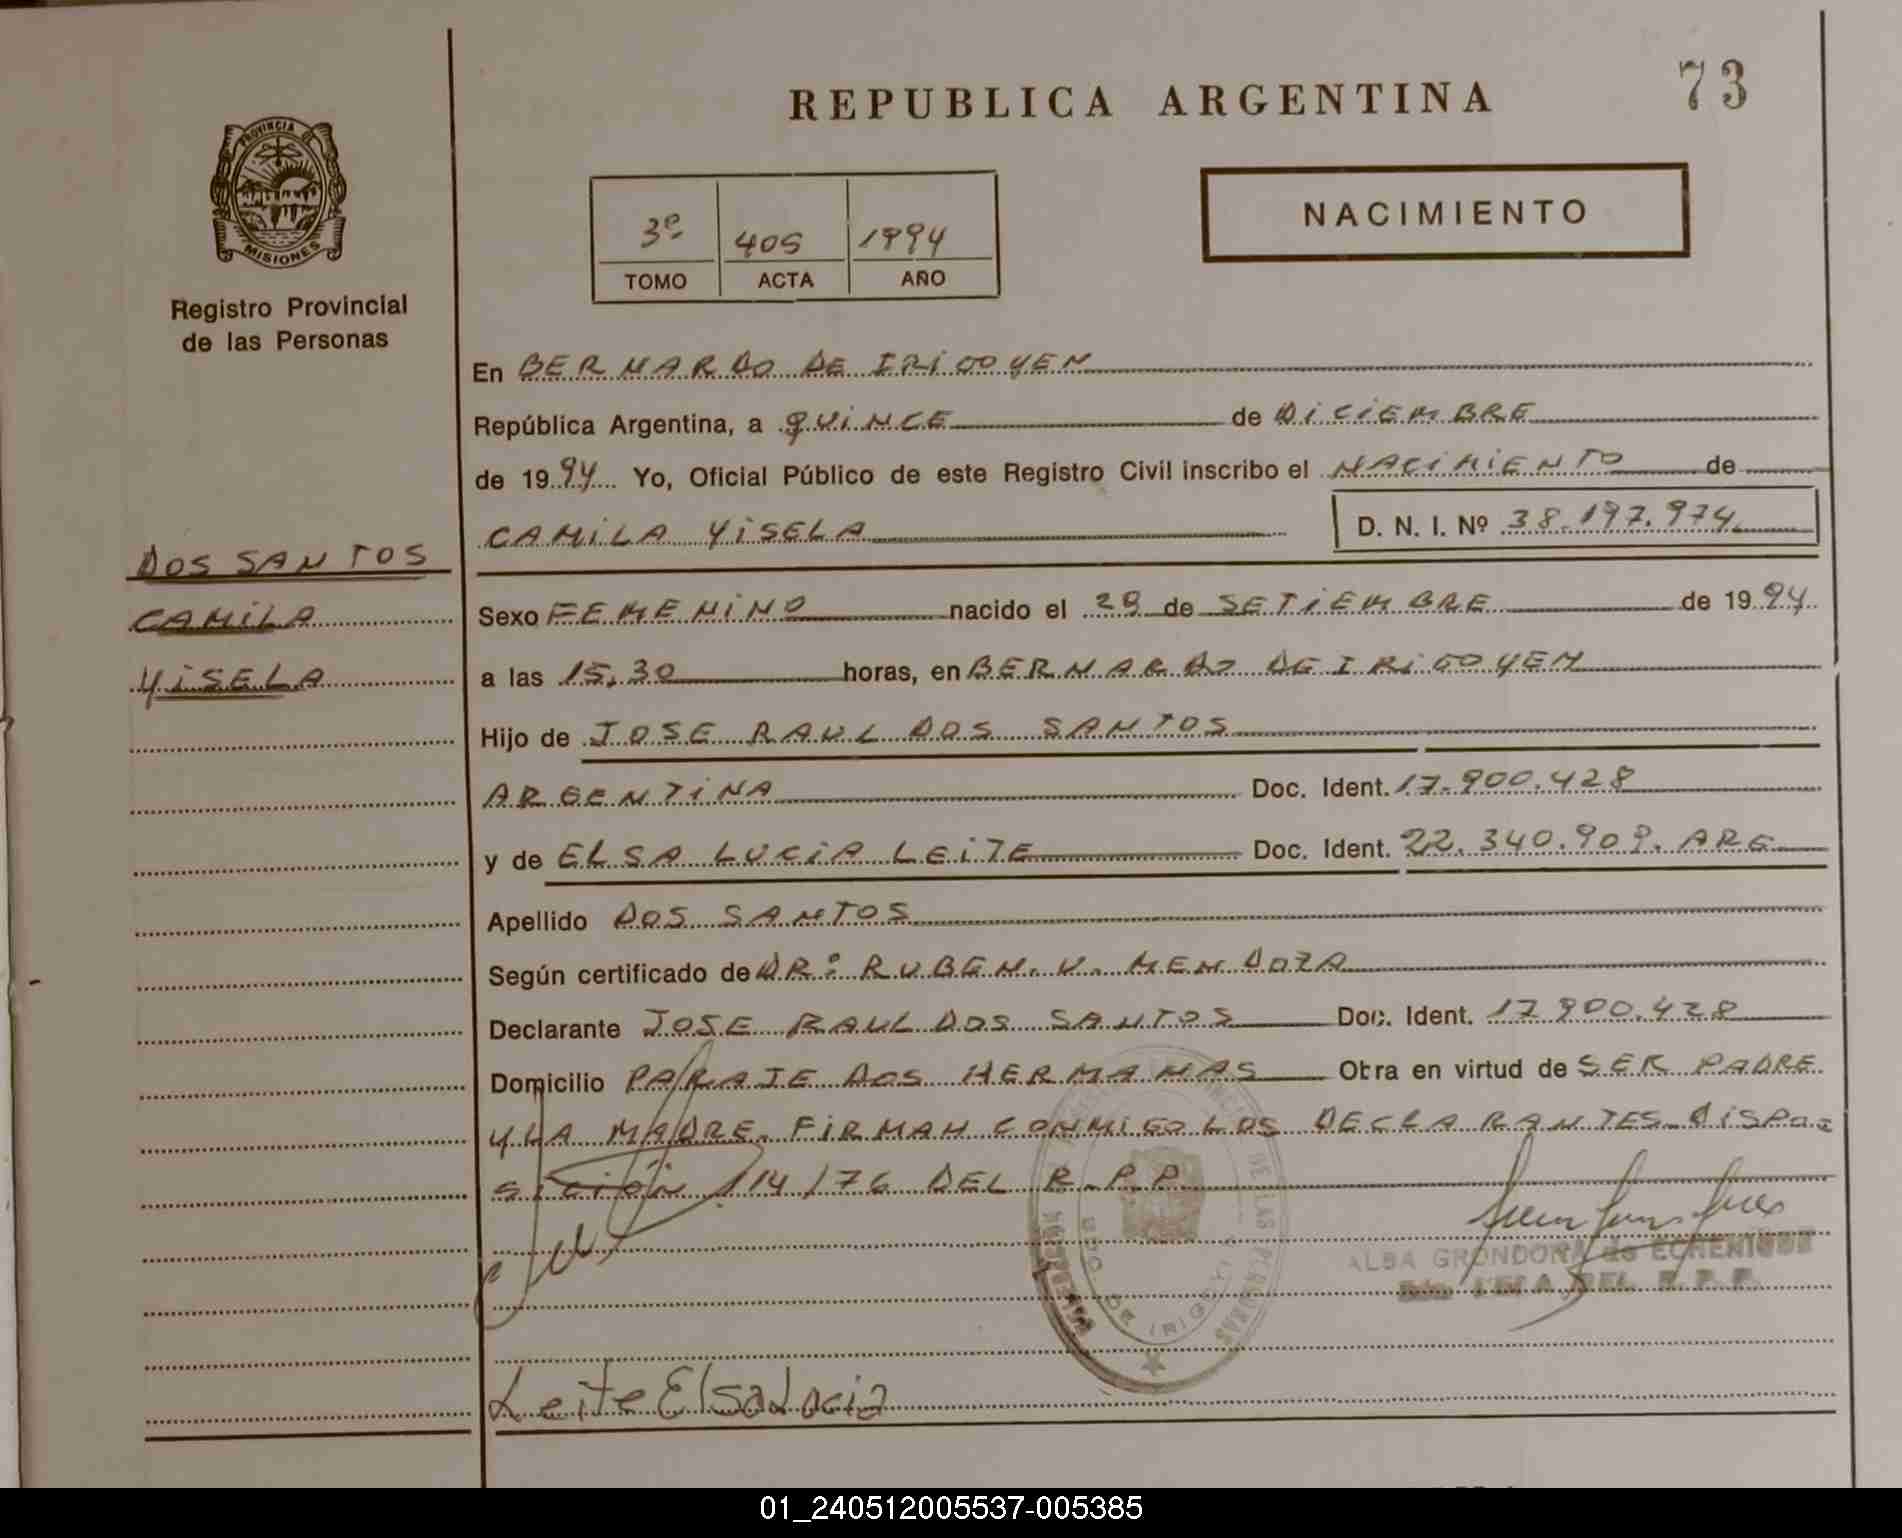 73
REPUBLICA ARGENTINA
PROVINCIA DE
MISIONES
Registro Provincial
de las Personas
NACIMIENTO
3º 405 1994
TOMO ACTA AÑO
En BERNARDO DE IRIGOYEN
República Argentina, a quince de DICIEMBRE
de 1994 Yo, Oficial Público de este Registro Civil inscribo el NACIMIENTO de
CAMILA YISELA D. N. I. Nº 38.197.974
DOS SANTOS
CAMILA
YISELA
Sexo FEMENINO nacido el de SETIEMBRE de 1994
a las 15,30 horas, en BERNARDO DE IRIGOYEN
Hijo de JOSE RAUL DOS SANTOS
ARGENTINA Doc. Ident. 17.900.428
y de ELSA LUCIA LEITE Doc. Ident. 22.340.909. ARG
Apellido DOS SANTOS
Según certificado de DRº RUBEN. V. MENDOZA
Declarante JOSE RAUL DOS SANTOS Doc. Ident. 17.900.428
Domicilio PARAJE DOS HERMANAS Obra en virtud de SER PADRE
Y LA MADRE. FIRMAN CONMIGO LOS DECLARANTES. DISPOSI
SICIÓN 114/76 DEL R.P.P.
ALBA GRONDONA de ECHENIQUE
DEL R. P. P.
BDO. DE IRIGOYEN
DE LAS PERSONAS
Leite Elsa Lucia
01_240512005537-005385